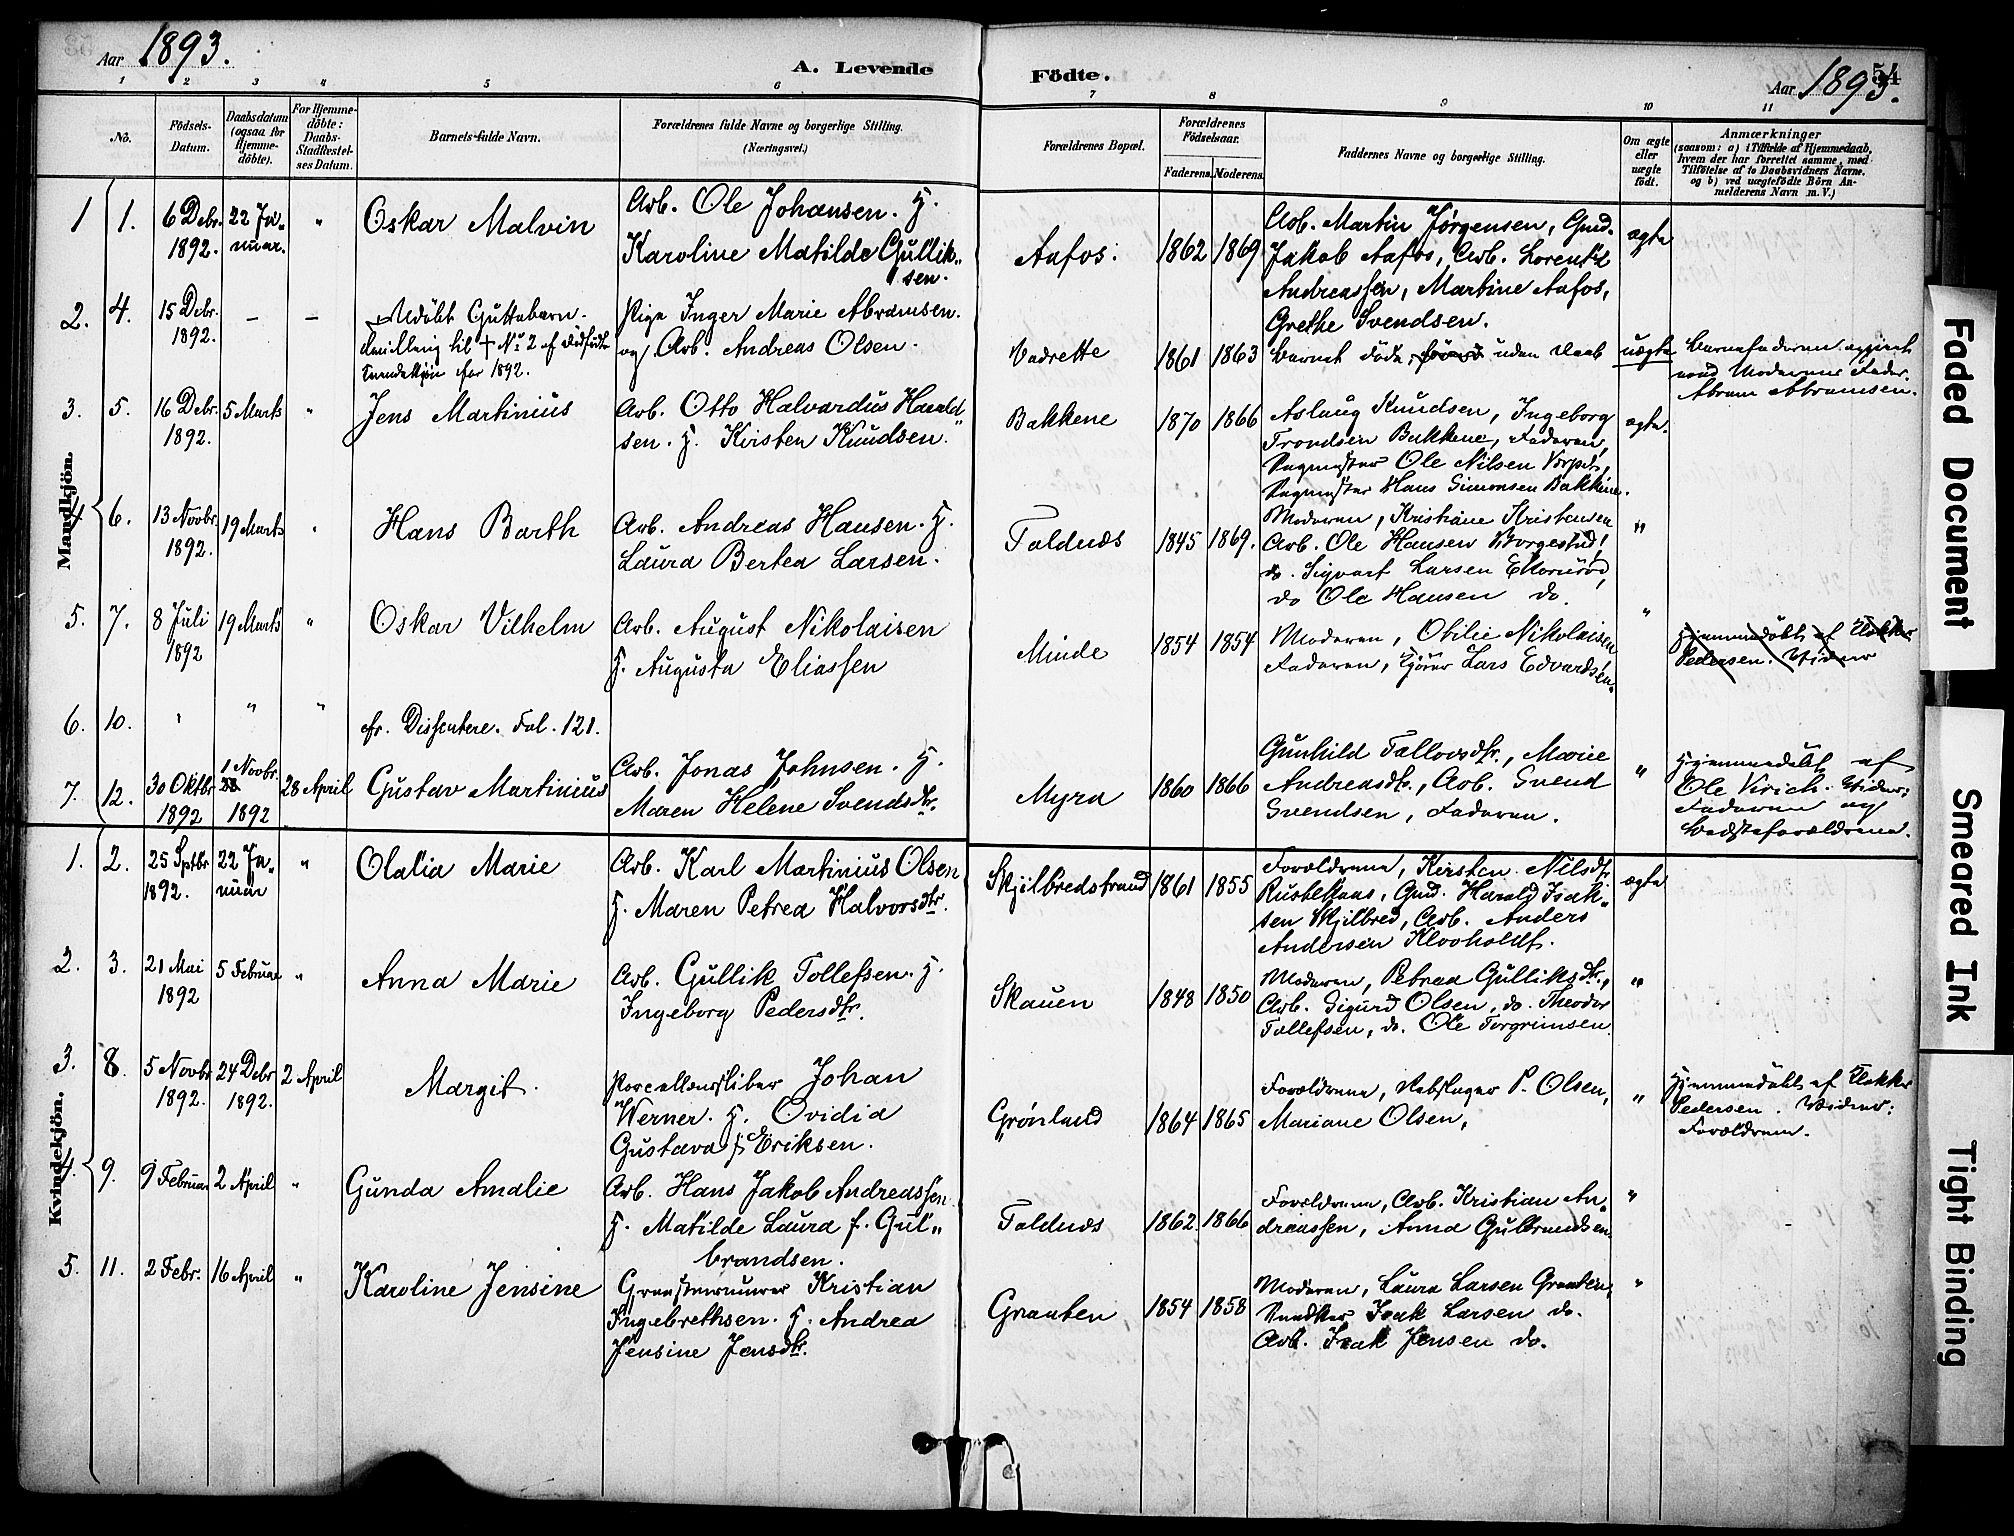 Aar 1893. A. Levende Födte. Aar 1893. 54
1 2 3 4 5 6 7 8 9 10 11
No. Födsels-Datum. Daabsdatum (ogsaa for Hjemme-döbte). For Hjemme-döbte: Daabs-Stadfæstelses Datum. Barnets fulde Navn. Forældrenes fulde Navne og borgerlige Stilling. (Næringsvei.) Forældrenes Bopæl. Forældrenes Födselsaar. Faderens. Moderens. Faddernes Navne og borgerlige Stilling. Om ægte eller uægte födt. Anmærkninger (saasom: a) i Tilfælde af Hjemmedaab, hvem der har forrettet samme, med Tilföielse af to Daabsvidners Navne. og b) ved uægtefödte Börn Anmelderens Navn m. V.)
Mandkjön.
1 1. 6 Debr. 1892. 22 Januar. " Oskar Malvin
Arb. Ole Johansen. H.
Karoline Matilde Gullik„
sen.
Aafos. 1862 1869
Arb. Martin Jørgensen, Gmd.
Jakob Aafos, Arb. Lorentz
Andreassen, Martine Aafos,
Grethe Svendsen.
ægte
2. 4. 15 Debr. 1892. – –
Udöbt Guttebarn.
Tvilling til † No 2 af dødfødte
Mandkjön for 1892.
Pige Inger Marie Abramsen.
og Arb. Andreas Olsen.
Vadrette 1861 1863
Barnet døde uden Daab
uægte
Barnefaderen opgivet
ved Moderens Fader.
Abram Abramsen.
3. 5. 16 Debr. 1892. 5 Marts " Jens Martinius
Arb. Otto Halvardus Harald„
sen. H. Kirsten Knudsen.
Bakkene 1870 1866
Aslaug Knudsen, Ingeborg
Trondsen Bakkene, Faderen,
Bagmester Ole Nilsen
Bagmester Hans Simonsen Bakkene.
ægte.
4 6. 13 Novbr. 1892. 19 Marts " Hans Barth
Arb. Andreas Hansen. H.
Laura Bertea Larsen.
Toldnæs 1845 1869.
Moderen, Kristiane Kristensen
Arb. Ole Hansen Borgestad,
do. Sigvart Larsen
do Ole Hansen do.
"
5. 7. 8 Juli 1892 19 Marts " Oskar Vilhelm
Arb. August Nikolaisen
H. Augusta Eliassen
Minde 1854 1854
Moderen, Otilie Nikolaisen
Faderen, Lars Edvardsen.
"
Hjemmedøbt af Klokker
Pedersen. Vidner
6. 10. " " " cfr. Dissentere. Fol. 121.
7. 12. 30 Oktbr 1892 1 Novbr. 1892 28 April Gustav Martinius
Arb. Jonas Johnsen. H.
Maren Helene Svendsdtr.
Myra 1860 1866
Gunhild Tollovsdtr., Marie
Andreasdtr., Arb. Svend
Svendsen, Faderen.
"
Hjemmedøbt af
Ole Virich. Vidner:
Faderen og
Bedsteforældrene.
Kvindekjön.
1. 2. 25 Septbr 1892. 22 Januar " Olalia Marie
Arb. Karl Martinius Olsen
H. Maren Petrea Halvorsdtr.
Skjilbredstrand 1861 1855
Forældrene, Kirsten Nilsdtr
Gmd. Harald Isak„
sen Skjilbred, Arb. Anders
Andersen Klovholdt.
ægte
2. 3. 21 Mai 1892 5 Februar " Anna Marie
Arb. Gullik Tollefsen. H.
Ingeborg Pedersdtr.
Skauen 1848 1850
Moderen, Petrea Gulliksdtr.,
Arb. Sigurd Olsen, do. Theodor
Tollefsen, do. Ole Torgrimsen.
"
3. 8. 5 Novbr 1892. 24 Debr 1892. 2 April Margit.
Porcellænssliber Johan
Werner. H. Ovidia
Gustava f. Eriksen.
Grønland 1864 1865
Forældrene, Rebslager P. Olsen,
Mariane Olsen,
"
Hjemmedøbt af Klokker
Pedersen. Vidner:
Forældrene.
4. 9. 9 Februar 2 April " Gunda Amalie
Arb. Hans Jakob Andreassen.
H. Matilde Laura f. Gul„
brandsen.
Toldnæs 1862. 1866
Forældrene, Arb. Kristian An„
dreassen, Anna Gulbrandsen
"
5. 11. 2 Febr. 16 April " Karoline Jensine
Graastensmurer Kristian
Ingebrethsen. H. Andrea
Jensine Jensdtr.
Graaten 1854 1858
Moderen, Laura Larsen Graaten,
Isak Larsen do.
Arb. Isak Jensen do.
"
Faded Document
Smeared Ink
Tight Binding